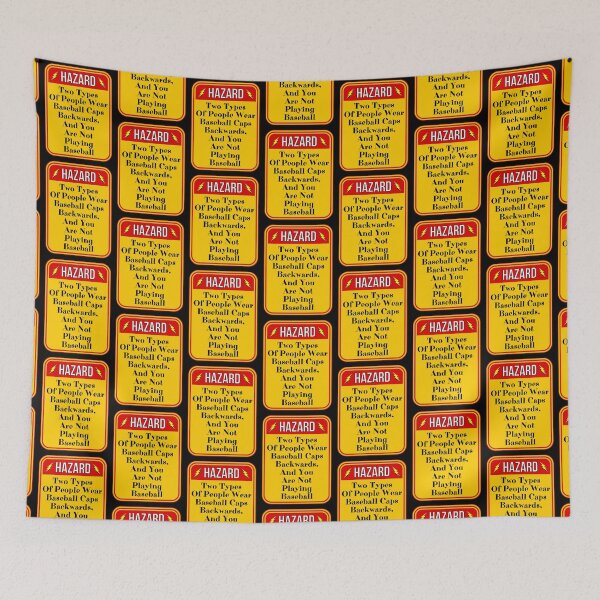 HAZARD
Two Types
Of People Wear
Baseball Caps
Backwards.
And You
Are Not
Playing
Baseball